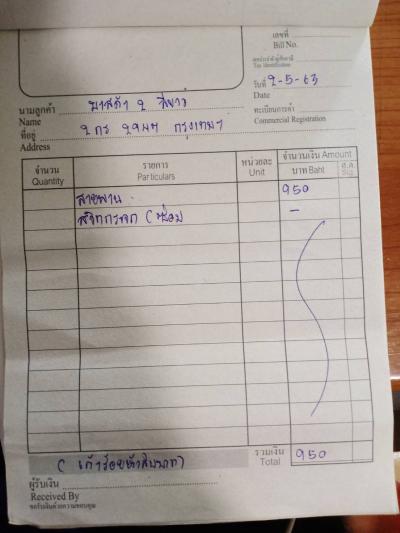 เลขที่
Bill No.
เลขประจำตัวผู้เสียภาษี
Tax Identification
วันที่ 2-5-63
Date
นามลูกค้า มาสด้า 2 สีขาว
Name
ทะเบียนการค้า
Commercial Registration
ที่อยู่ 2กร 2947 กรุงเทพฯ
Address
จำนวน รายการ หน่วยละ จำนวนเงิน Amount
Quantity Particulars Unit บาท Baht ส.ต. Stg.
สายพาน 950
สวิทกระจก (ซ่อม) -
(เก้าร้อยห้าสิบบาท) รวมเงิน 950
Total
ผู้รับเงิน
Received By
ขอรับเงินด้วยความขอบคุณ